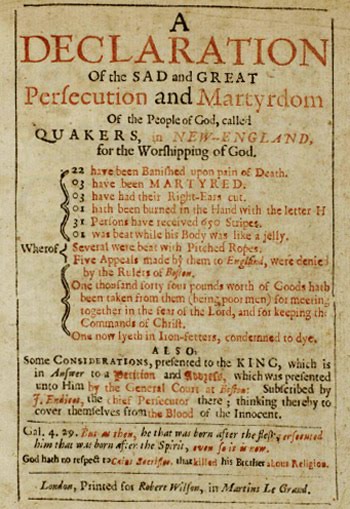 A
DECLARATION
Of the SAD and GREAT
Persecution and Martyrdom
Of the People of God, called
QUAKERS, in NEW-ENGLAND,
for the Worshipping of God.
22 have been Banished upon pain of Death.
03 have been MARTYRED.
03 have had their Right-Ears cut.
01 hath been burned in the Hand with the letter H
31 Persons have received 650 Stripes.
01 was beat while his Body was like a jelly.
Wherof Several were beat with Pitched Ropes.
Five Appeals made by them to England, were denied
by the Rulers of Boston.
One thousand forty four pounds worth of Goods hath
been taken from them (being poor men) for meeting
together in the fear of the Lord, and for keeping the
Commands of Christ.
One now lyeth in Iron-fetters, condemned to dye.
ALSO,
Some CONSIDERATIONS, presented to the KING, which is
in Answer to a Petition and Address, which was presented
unto Him by the General Court at Boston: Subscribed by
J. Endicot, the chief Persecutor there; thinking thereby to
cover themselves from the Blood of the Innocent.
Gal. 4. 29. But as then, he that was born after the flesh, persecuted
him that was born after the Spirit, even so it is now.
God hath no respect to Cains Sacrifice, that killed his Brother about Religion.
London, Printed for Robert Wilson, in Martins Le Grand.